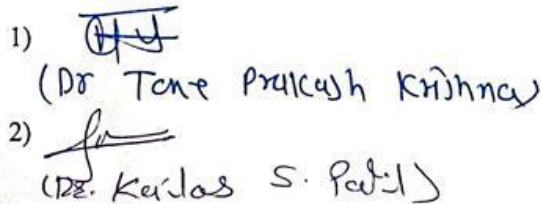 1)
(Dr Tane Prakash Krishna)
2)
(Dr. Kailas S. Patil)